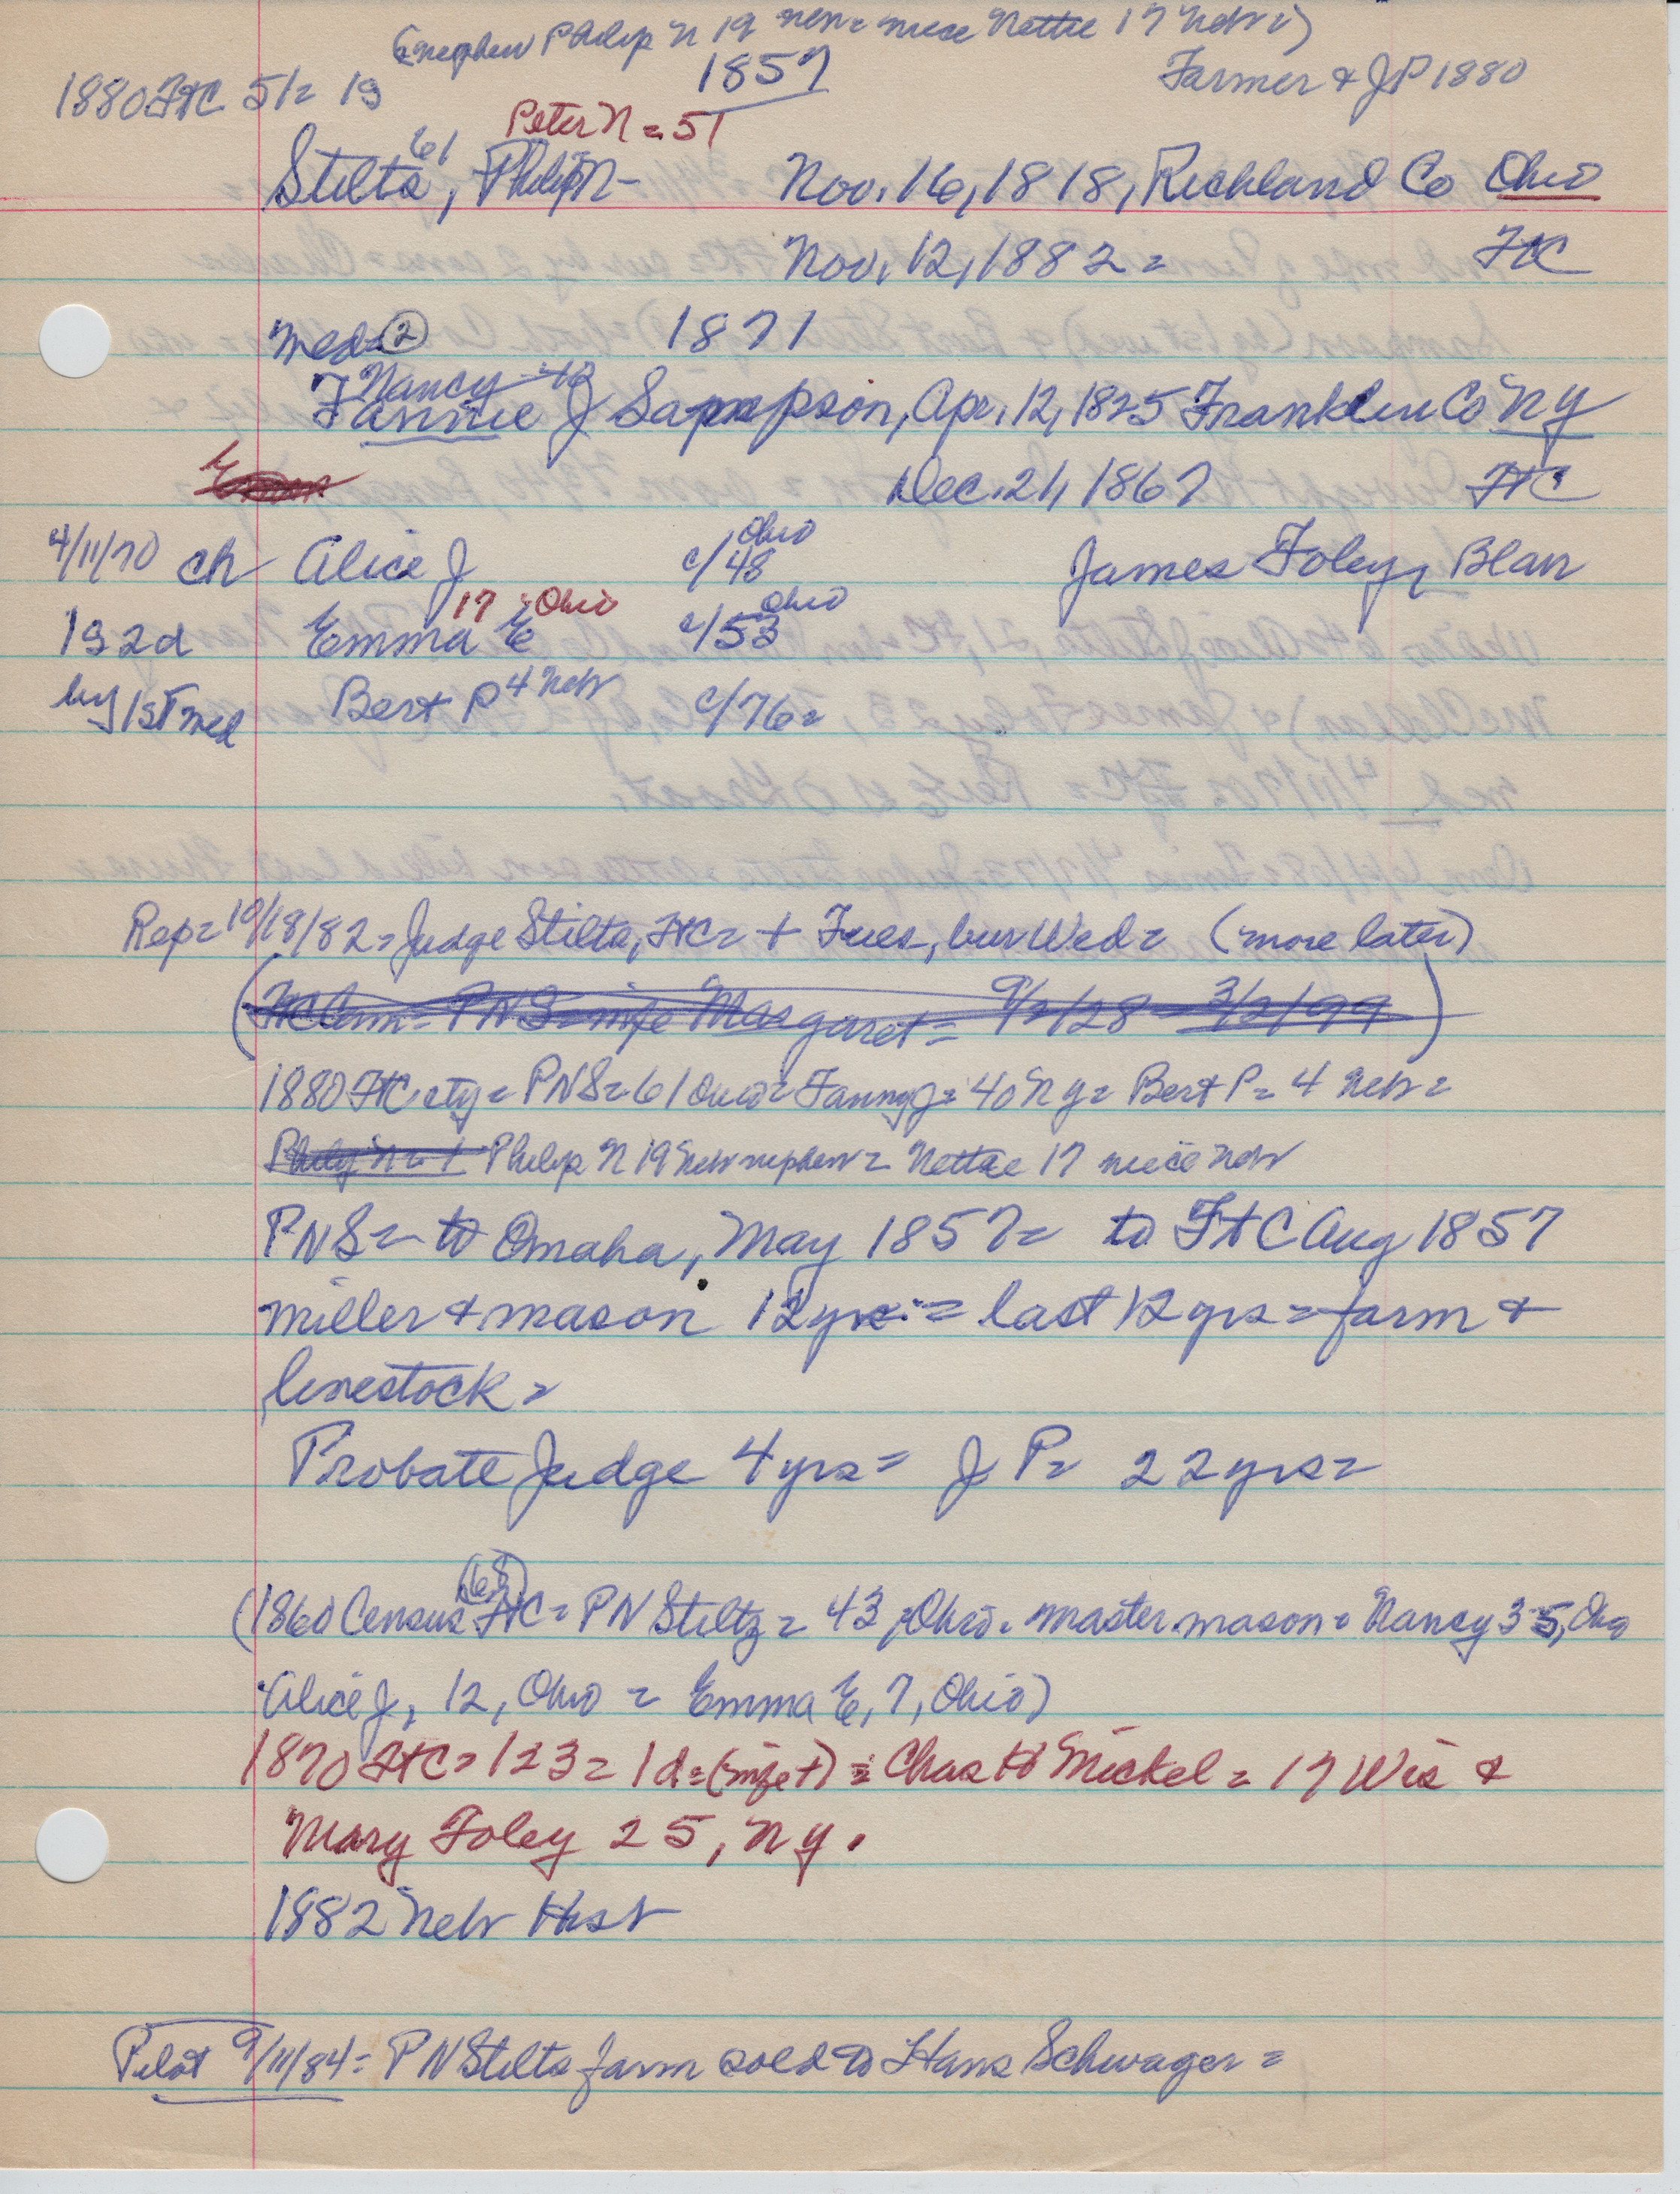 (nephew Philip N 19 Neb = niece Nettie 17 Nebr)
1880 FtC 51= 1s 1857 Farmer & JP 1880
Peter N = 51
Stilts 61, Philip N - Nov. 16, 1818, Richland Co Ohio
Nov. 12, 1882 = FtC
Med= ② 1871
Nancy
Fannie J Sampson, Apr. 12, 1825 Franklin Co NY
Dec. 21, 1867 FtC
4/11/70 ch Alice J c/48 Ohio James Foley, Blair
1s 2d Emma E 17 Ohio c/53 Ohio
by 1st Med Bert P 4 Nebr c/76=
Rep= 10/18/82= Judge Stilts, FtC= + Tues, bur Wed= (more later)
(FtC Cem= PNS= wife Margaret= 9/2/28 - 3/2/99)
1880 FtC cty= PNS= 61 Ohio= Fanny J= 40 NY= Bert P= 4 Nebr=
Philip N= 1 Philip N 19 Nebr nephew= Nettie 17 niece Nebr
PNS= to Omaha, May 1857= to FtC Aug 1857
miller & mason 12 yrs= last 12 yrs= farm &
livestock=
Probate Judge 4 yrs= J P= 22 yrs=
(68)
(1860 Census FtC= PN Stiltz= 43, Ohio= master mason= Nancy 35, Ohio
Alice J, 12, Ohio = Emma E, 7, Ohio)
1870 FtC= 123= 1d= (wife +) = Chas H Mickel= 17 Wis &
Mary Foley 25, NY.
1882 Nebr Hist
Pilot 9/11/84= PN Stilts farm sold to Hans Schwager=